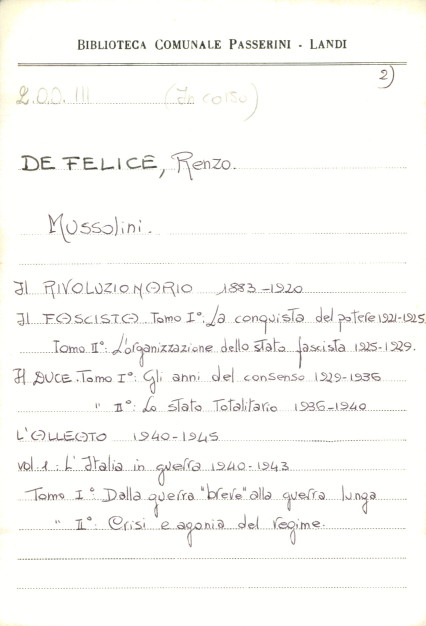 BIBLIOTECA COMUNALE PASSERINI - LANDI
2)
L.O.D. III (In corso)
DE FELICE, Renzo.
Mussolini.
Il RIVOLUZIONARIO 1883-1920
Il FASCISTA. Tomo I°: La conquista del potere 1921-1925
Tomo II°: L'organizzazione dello stato fascista 1925-1929.
Il DUCE. Tomo I°: Gli anni del consenso 1929-1936
" II°: Lo stato Totalitario 1936-1940
L'ALLEATO 1940-1945
vol. 1: L'Italia in guerra 1940-1943
Tomo I°: Dalla guerra "breve" alla guerra lunga
" II°: Crisi e agonia del regime.